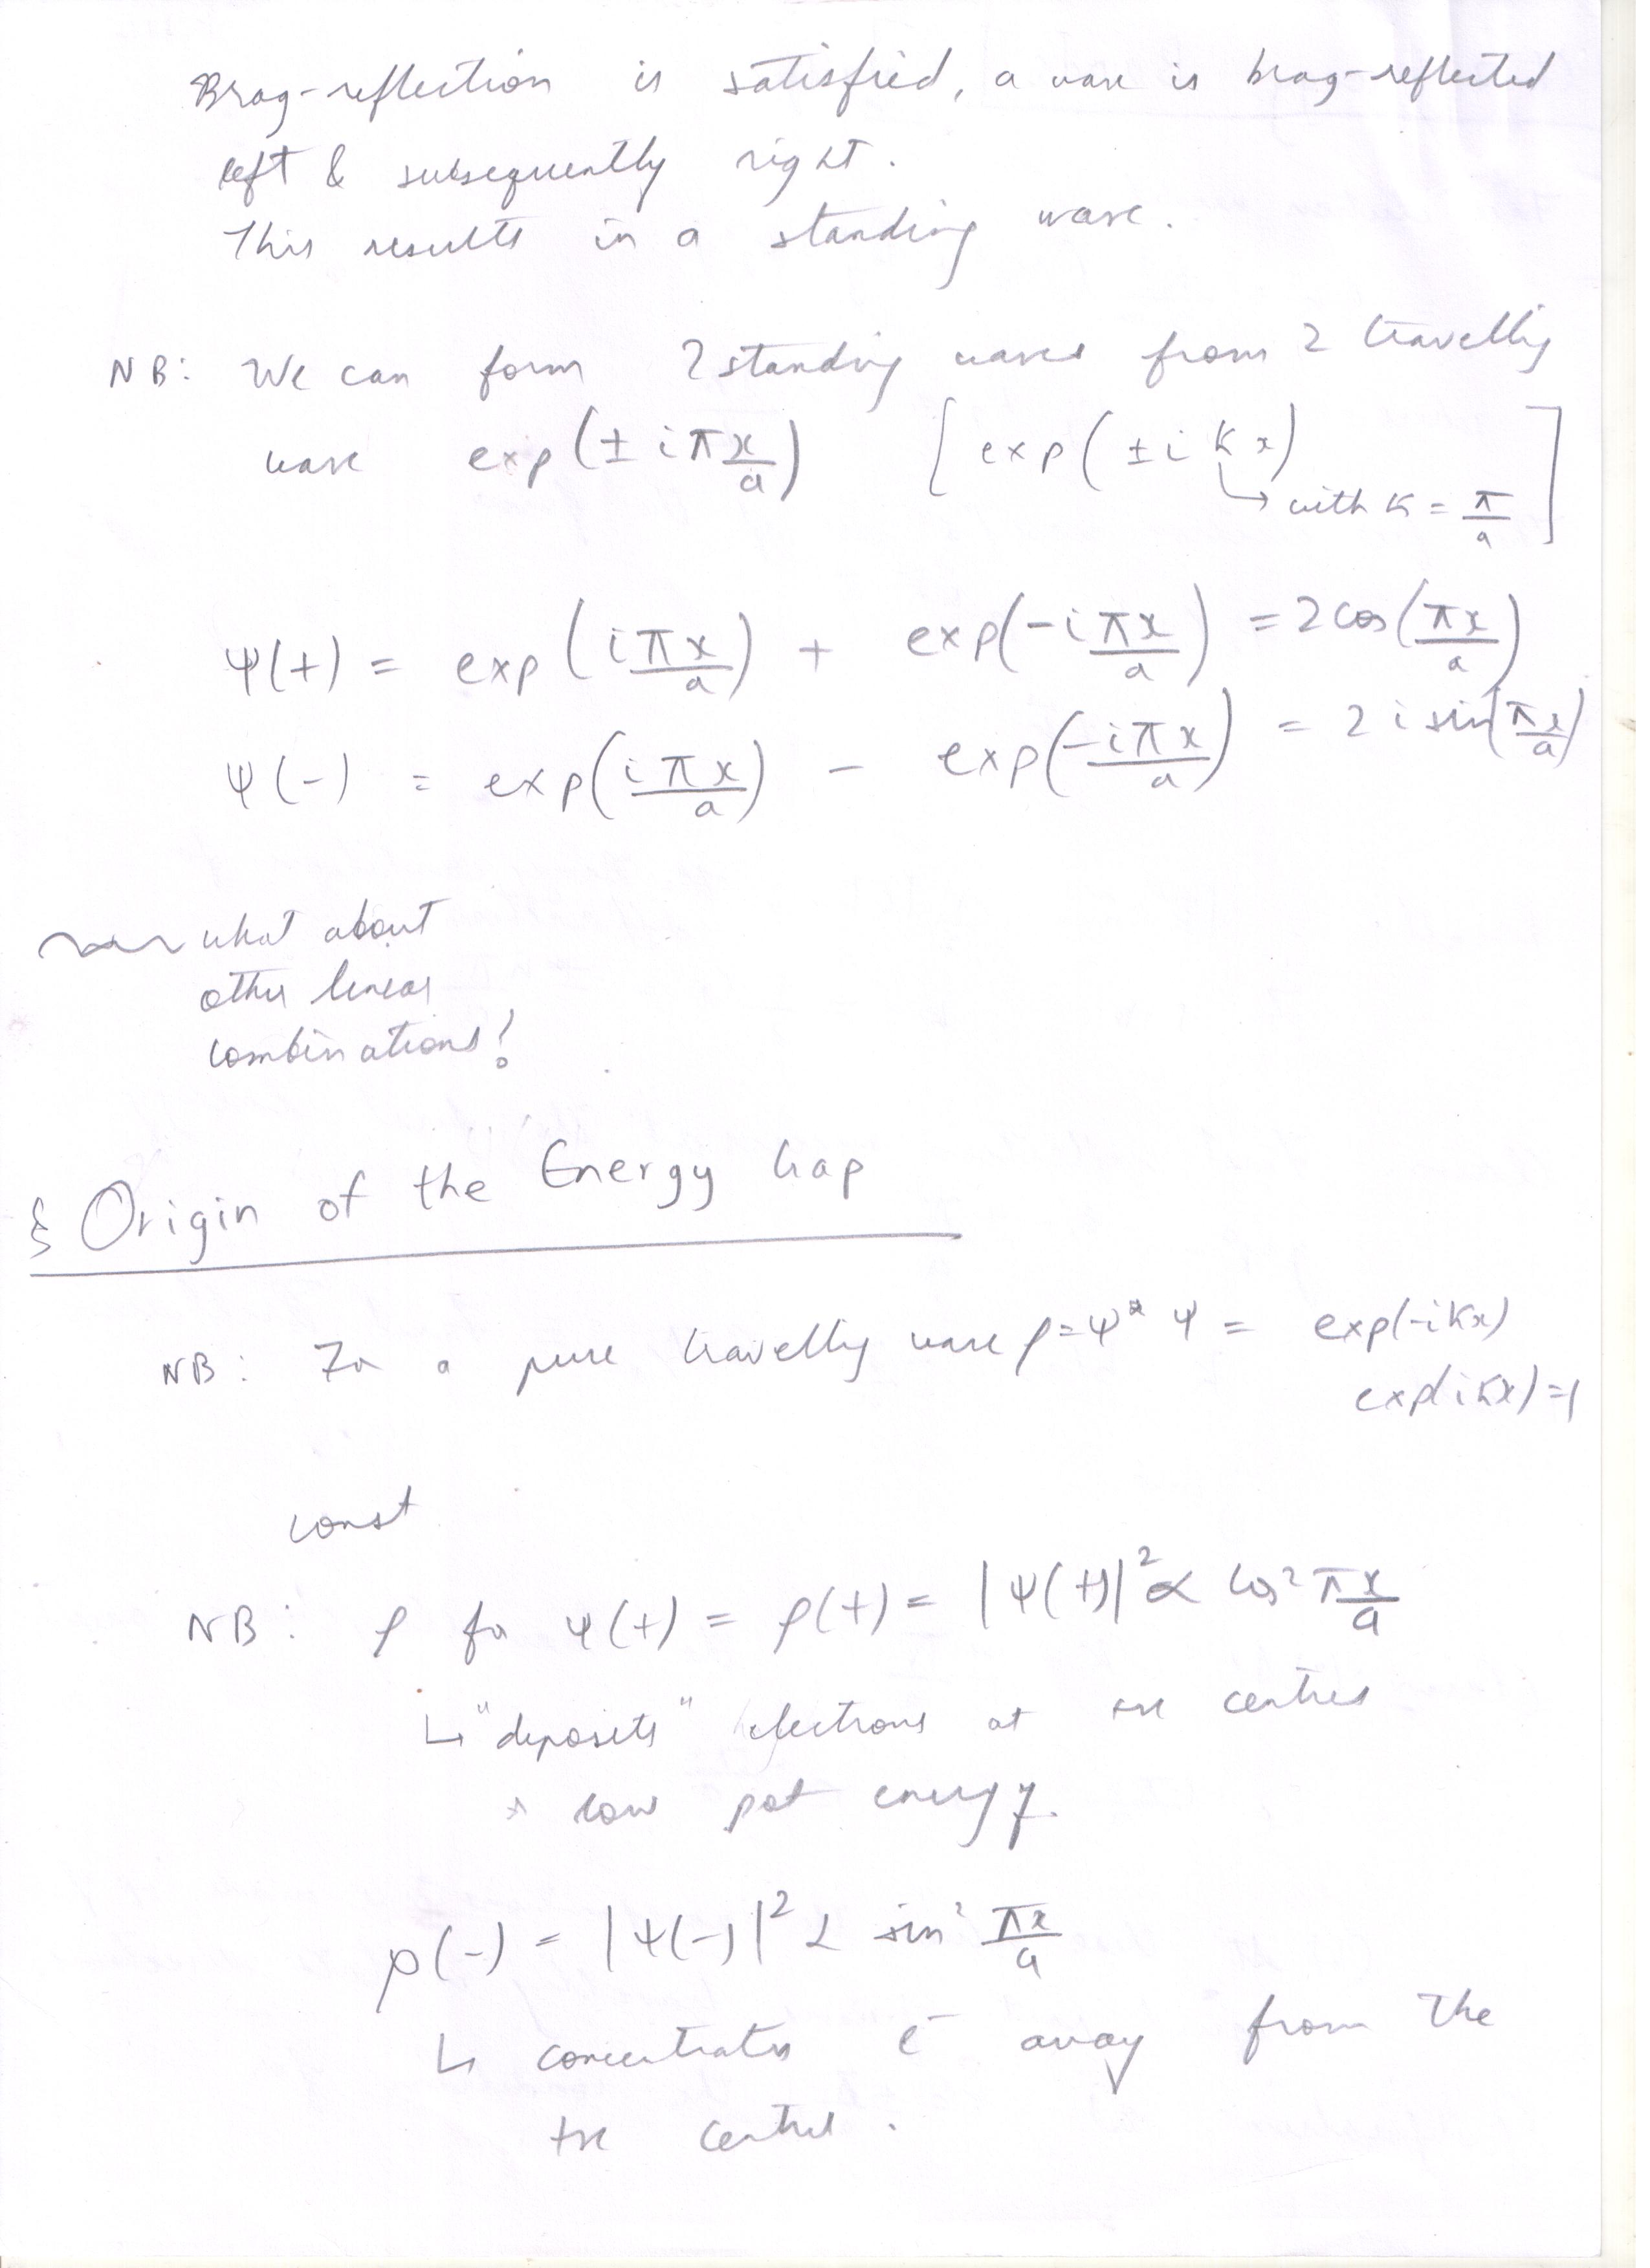 Brag-reflection is satisfied, a wave is brag-reflected
left & subsequently right.
This results in a standing wave.
NB: We can form 2 standing waves from 2 travelling
wave exp(± iπx/a) [exp(± i K x)
↳ with K = π/a]
Ψ(+) = exp(iπx/a) + exp(-iπx/a) = 2 cos(πx/a)
Ψ(-) = exp(iπx/a) - exp(-iπx/a) = 2 i sin(πx/a)
what about
other linear
combinations?
§ Origin of the Energy Gap
NB: For a pure travelling wave ρ=Ψ* Ψ = exp(-iKx)
exp(iKx)=1
const
NB: ρ for Ψ(+) = ρ(+) = |Ψ(+)|² ∝ cos² πx/a
↳ "deposits" electrons at +ve centres
* low pot energy.
ρ(-) = |Ψ(-)|² ∝ sin² πx/a
↳ concentrates e⁻ away from the
+ve centres.